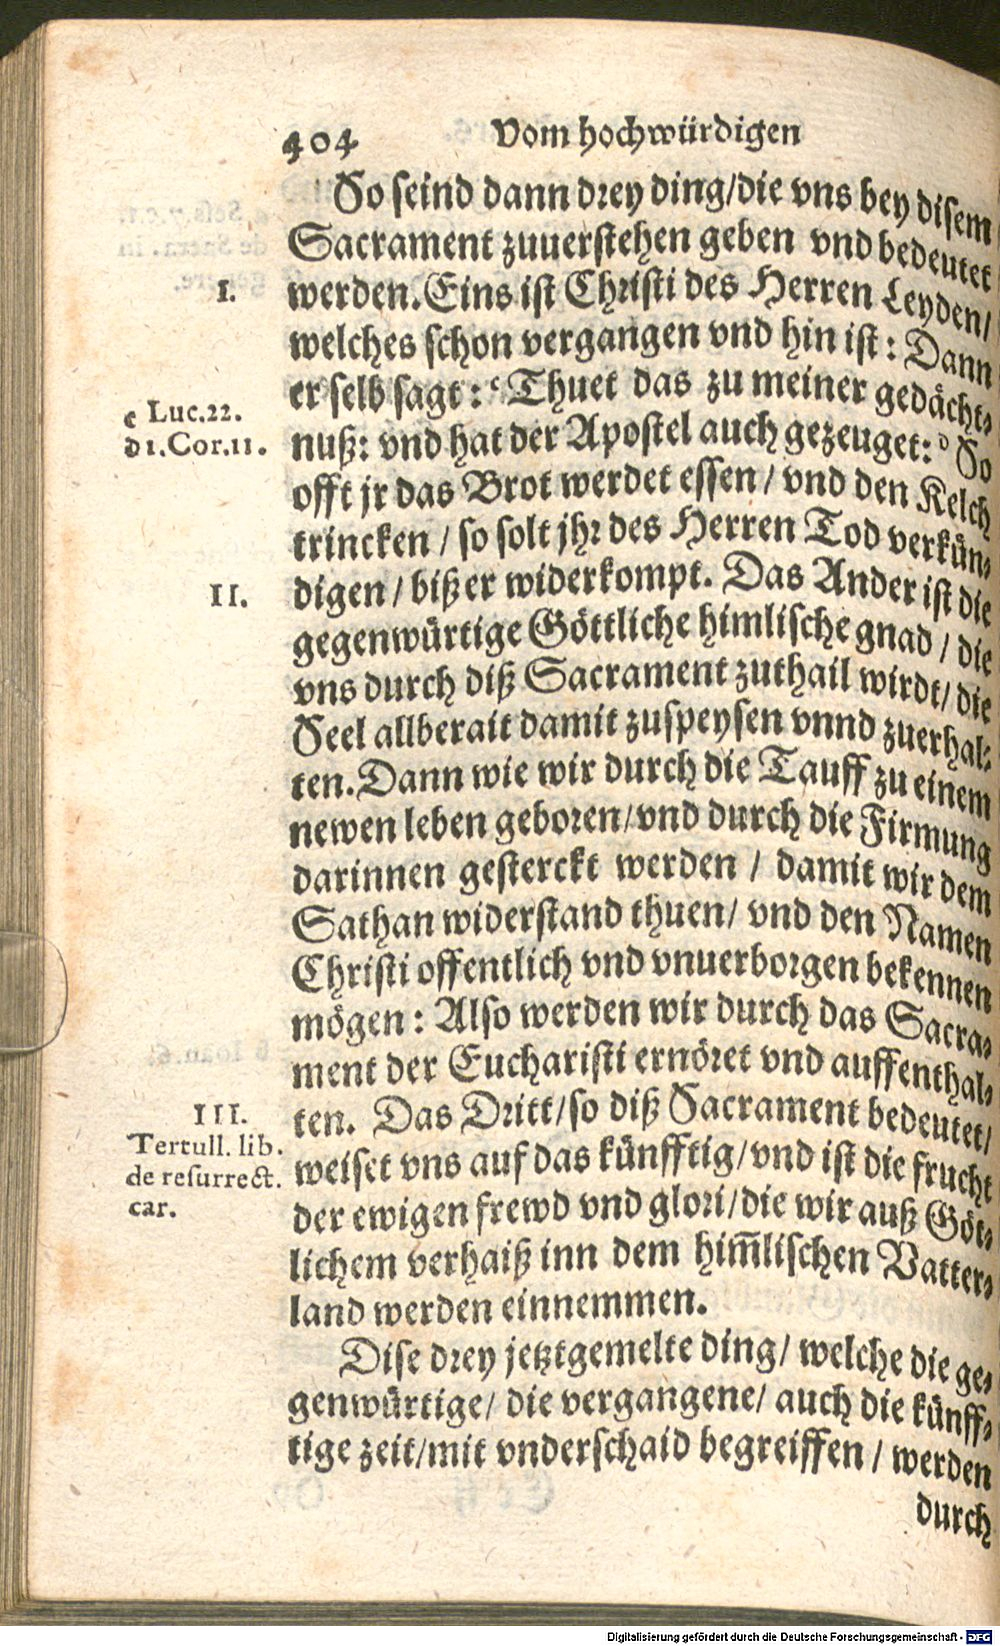 404 Vom hochwürdigen
So seind dann drey ding/die vns bey disem
Sacrament zuuerstehen geben vnd bedeutet
I.
werden. Eins ist Christi des Herren Leyden/
welches schon vergangen vnd hin ist: Dann
er selb sagt: c Thuet das zu meiner gedächt⸗
c Luc.22.
D 1.Cor.11.
nuß: vnd hat der Apostel auch gezeuget: D So
offt jr das Brot werdet essen/ vnd den Kelch
trincken/ so solt jhr des Herren Tod verkün⸗
II.
digen/ biß er widerkompt. Das Ander ist die
gegenwürtige Göttliche himlische gnad/ die
vns durch diß Sacrament zuthail wirdt/ die
Seel allberait damit zuspeysen vnnd zuerhal⸗
ten. Dann wie wir durch die Tauff zu einem
newen leben geboren/vnd durch die Firmung
darinnen gesterckt werden/ damit wir dem
Sathan widerstand thuen/ vnd den Namen
Christi offentlich vnd vnuerborgen bekennen
mögen: Also werden wir durch das Sacra⸗
ment der Eucharisti ernöret vnd auffenthal⸗
III.
ten. Das Dritt/so diß Sacrament bedeutet/
Tertull. lib.
de resurrect.
car.
weiset vns auf das künfftig/vnd ist die frucht
der ewigen frewd vnd glori/die wir auß Göt⸗
lichem verhaiß inn dem him̃lischen Vatter⸗
land werden einnemmen.
Dise drey jetztgemelte ding/ welche die ge⸗
genwürtige/ die vergangene/ auch die künff⸗
tige zeit/mit vnderschaid begreiffen/ werden
durch
Digitalisierung gefördert durch die Deutsche Forschungsgemeinschaft - DFG